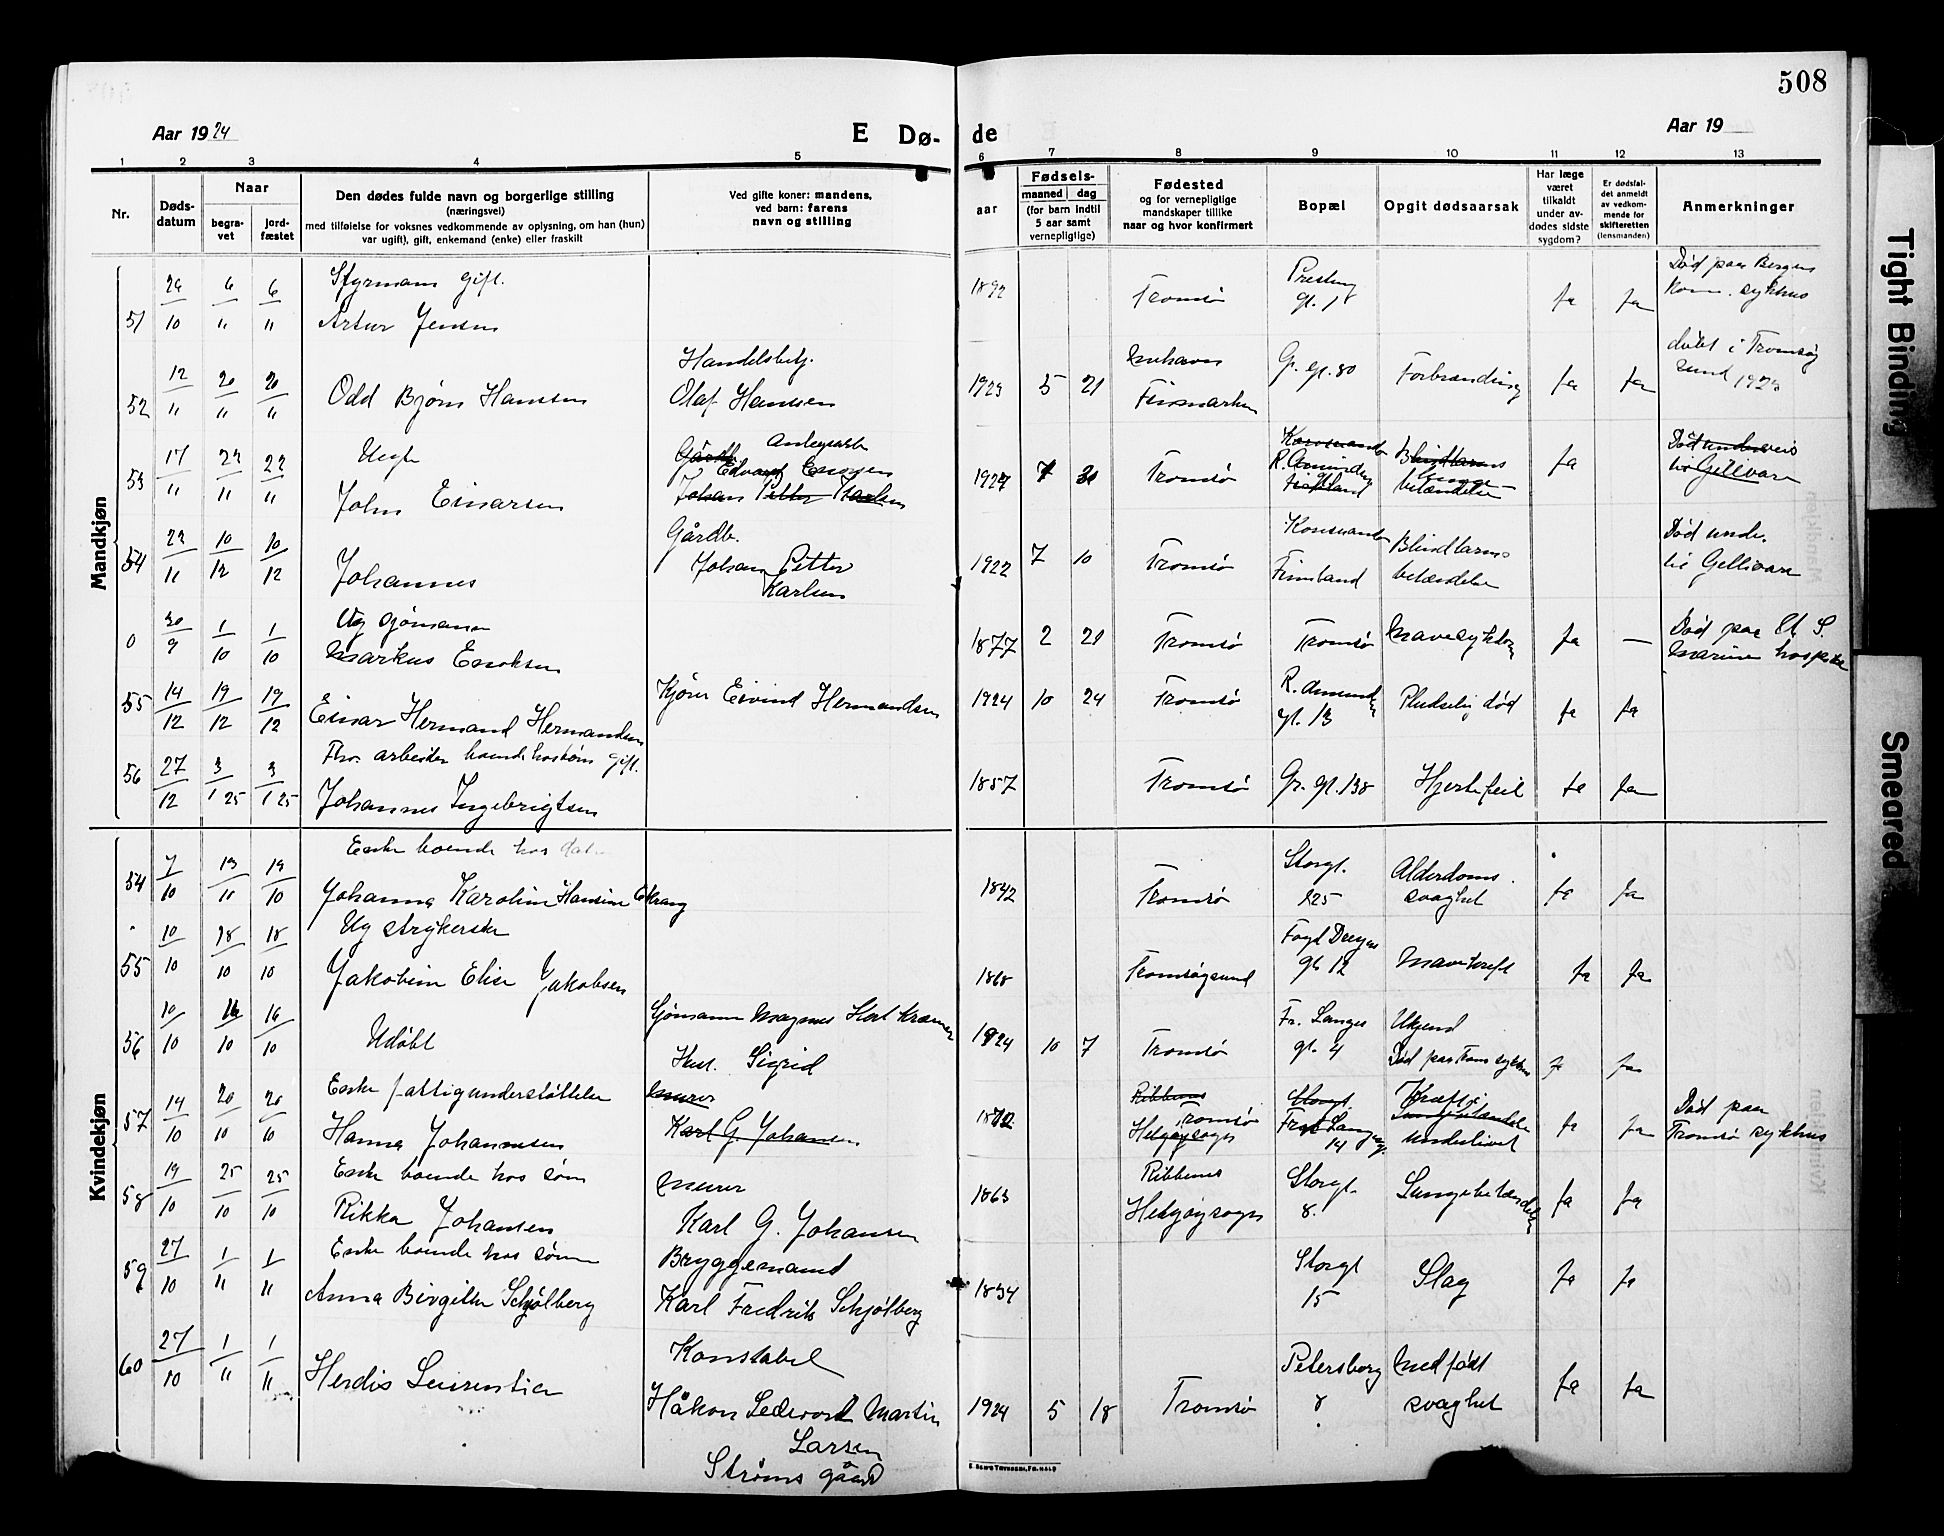 508
Aar 1924
E Dø-
de
Aar 19
1 2 3 4 5 6 7 8 9 10 11 12 13
Nr.
Døds-
datum
Naar
begra-
vet
jord-
fæstet
Den dødes fulde navn og borgerlige stilling
(næringsvei)
med tilføielse for voksnes vedkommende av oplysning, om han (hun)
var ugift), gift, enkemand (enke) eller fraskilt
Ved gifte koner: mandens,
ved barn: farens
navn og stilling
Fødsels-
aar
maaned dag
(for barn indtil
5 aar samt
vernepligtige)
Fødested
og for vernepligtige
mandskaper tillike
naar og hvor konfirmert
Bopæl
Opgit dødsaarsak
Har læge
været
tilkaldt
under av-
dødes sidste
sygdom?
Er dødsfal-
det anmeldt
av vedkom-
mende for
skifteretten
(lensmanden)
Anmerkninger
Mandkjøn
51 6 6 Styrmann gift. 1892 Tromsø ja ja Død paa Bergens
10 " " Artur Jensen Kom. sykhus
52 12 20 20 Handelsbetj. 1923 5 21 Gr. gt. 80 Forbrænding ja ja døbt i Tromsøy
" " " Odd Bjørn Hansen Olaf Hansen Finmarken sund 1923
53 17 22 22 Gårdb. Edvard 1927 Tromsø R. Amunds ja Død underveis
" " " John Einarsen Johan Petter Karlsen Finland betændelse til Gellivare
54 22 10 10 Gårdb. 1922 7 10 Tromsø Blindtarms Død unde.
11 12 12 Johannes Johan Petter Finland betændelse til Gellivare
Karlsen
0 30 1 1 Ug sjømann 1877 2 21 Tromsø Tromsø Mavesykdom ja — Død paa U. S.
9 10 10 Markus Enoksen Marine hospital
55 14 19 19 Kjører Eivind Hermandsen 1924 10 24 Tromsø R. Amunds Pludselig død ja ja
12 12 12 Einar Hermand Hermandsen gt. 13
56 27 3 3 Fhv. arbeider boende hos søn gift. 1857 Tromsø Gr. gt. 138 Hjertefeil ja ja
12 1 25 1 25 Johannes Ingebrigtsen
Kvindekjøn
54 7 13 13 Enke boende hos 1842 Tromsø Storgt. Alderdoms ja ja
10 11 10 Johanna Karoline Hansine 125 svaghet
55 10 18 18 Ug strykerske 1868 Tromsøysund Fogd Dreyers Mavekræft ja ja
10 10 10 Jakobine Elise Jakobsen gt. 12
56 10 16 16 Sjømann Magnus Karl Kræmer 1924 10 7 Tromsø Fr. Langes Ukjend
10 10 10 Udøbt Hust. Sigrid gt. 4 Død paa Troms sykhus ja ja
57 14 20 20 Enke fattigunderstøttelse Murer 1872 Ribbenes Storgt Kræft i ja ja Død paa
10 10 10 Hanna Johannesen Karl G. Johansen Tromsø Fr. Langes Lungebetændelse Tromsø sykhus
Helgøysogn 14 underlivet
58 19 25 25 Enke boende hos søn Murer 1863 Ribbenes Storgt. Lungebetændelse ja ja
10 10 10 Rikka Johansen Karl G. Johansen Helgøysogn 8.
59 27 1 1 Enke boende hos søn Bryggemand 1834 Storgt Slag ja ja
10 11 11 Anna Birgitte Schjølberg Karl Fredrik Schjølberg 15
60 27 1 1 Konstabel 1924 5 18 Tromsø Petersborg Medfødt ja ja
10 11 11 Herdis Laurentia Håkon Martin 8 svaghet
Larsen
Strømsgaard
Tight Binding
Smeared